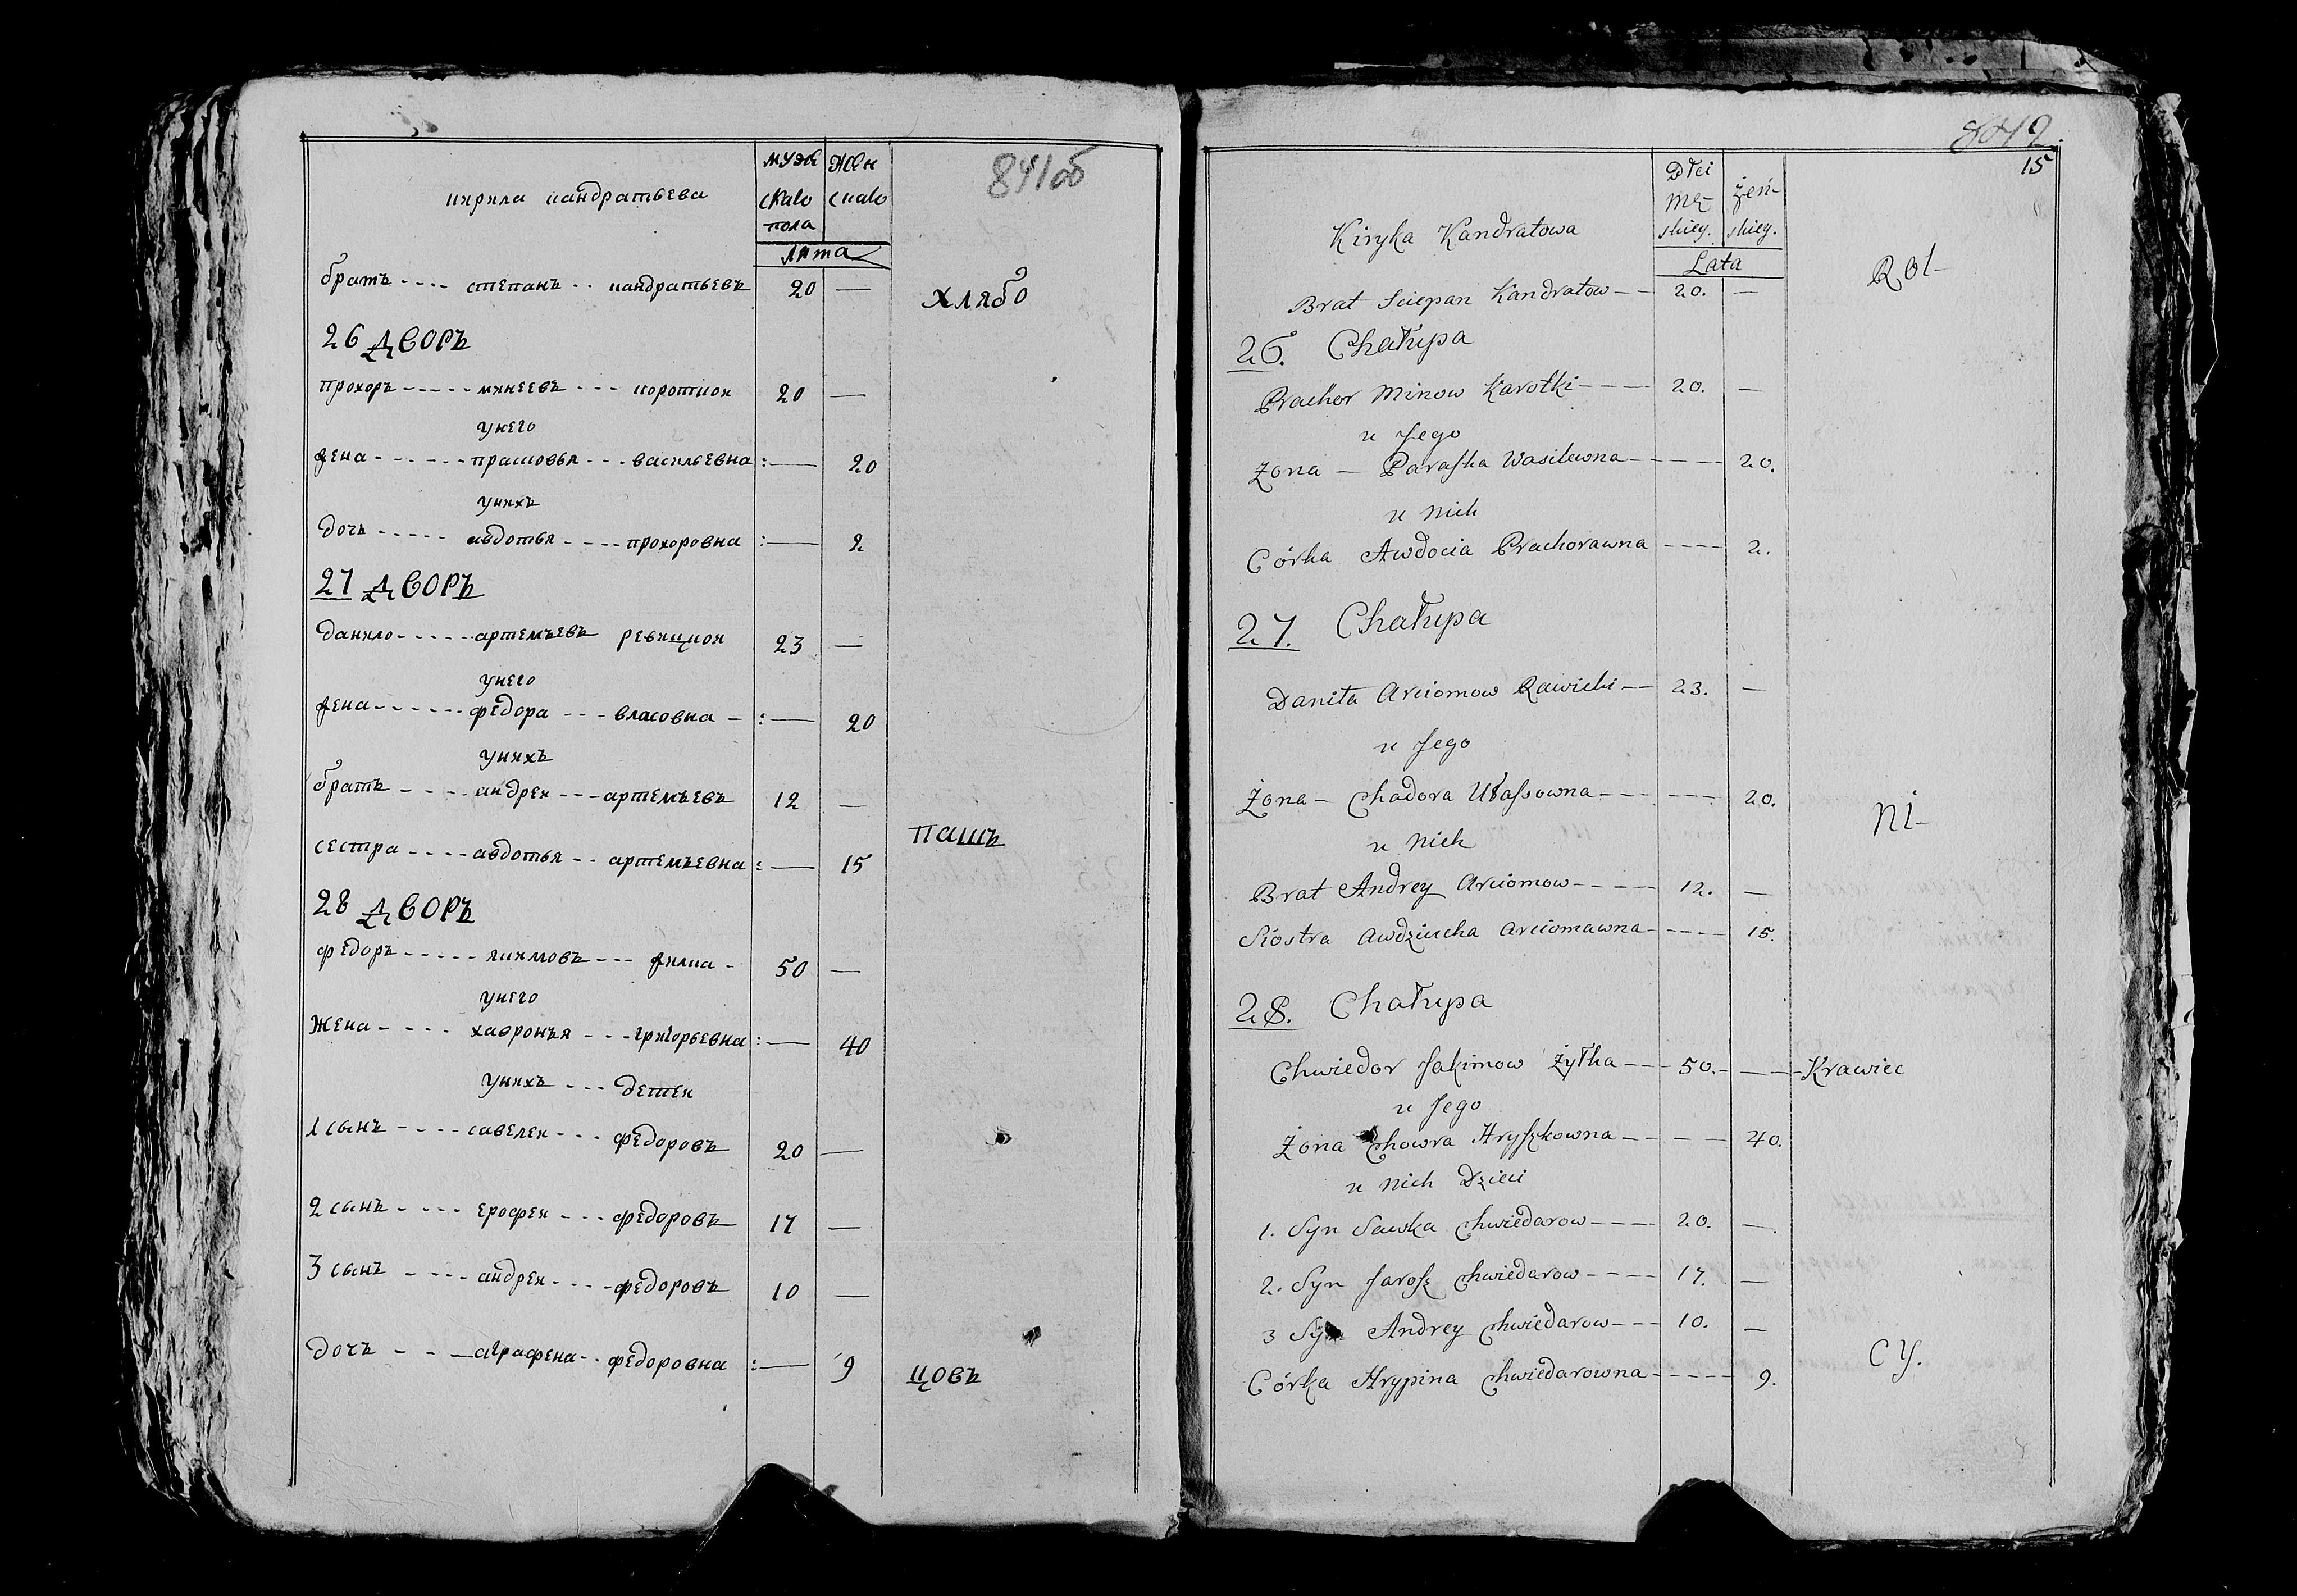 841об
кирила кандратьева
мужскаго пола
женскаго
лѣта
братъ - - - - степанъ - - кандратьевъ 20 —
хлѣбо
26 дворъ
прохоръ - - - - - минеевъ - - - короткои 20 —
унего
жена - - - - - - прасковья - - - васильевна : — 20
унихъ
дочь - - - - - авдотья - - - - прохоровна : — 2
27 дворъ
данило - - - - - артемъевъ ревицкои 23 —
унего
жена - - - - - - федора - - - власовна - : — 20
унихъ
братъ - - - - - андреи - - - артемъевъ 12 —
пашъ
сестра - - - - авдотья - - артемъевна : — 15
28 дворъ
федоръ - - - - - якимовъ - - - жилка - 50 —
унего
жена - - - - хавронъя - - - григорьевна : — 40
унихъ - - - детеи
1 сынъ - - - - савелеи - - - федоровъ 20 —
2 сынъ - - - - ерофеи - - - федоровъ 17 —
3 сынъ - - - - андреи - - - - федоровъ 10 —
дочь - - - аграфена - - федоровна : — 9
цовъ
842.
15
Płci męskiey.
żeńskiey.
Kiryka Kandratowa
Lata
Rol-
Brat Sciepan Kandratow - - 20. —
26. Chałupa
Prachor Minow Karotki - - - - 20. —
u Jego
Żona — Paraska Wasilewna - - - - - 20.
u Nich
Córka Awdocia Prachorawna - - - - 2.
27. Chałupa
Daniła Arciomow Rawicki - - 23. —
u Jego
Żona — Chadora Ułassowna - - - - - - 20.
ni-
u Nich
Brat Andrey Arciomow - - - - 12. —
Siostra Awdziucha Arciomawna - - - - - 15.
28. Chałupa
Chwiedor Jakimow Żyłka - - - 50. - — - Krawiec
u Jego
Żona Chowra Hryszkowna - - - - - 40.
u Nich Dzieci
1. Syn Sawka Chwiedarow - - - - 20. —
2. Syn Jarosz Chwiedarow - - - - 17. —
3 Syn Andrey Chwiedarow - - - 10. —
cy.
Córka Hrypina Chwiedarowna - - - - - 9.